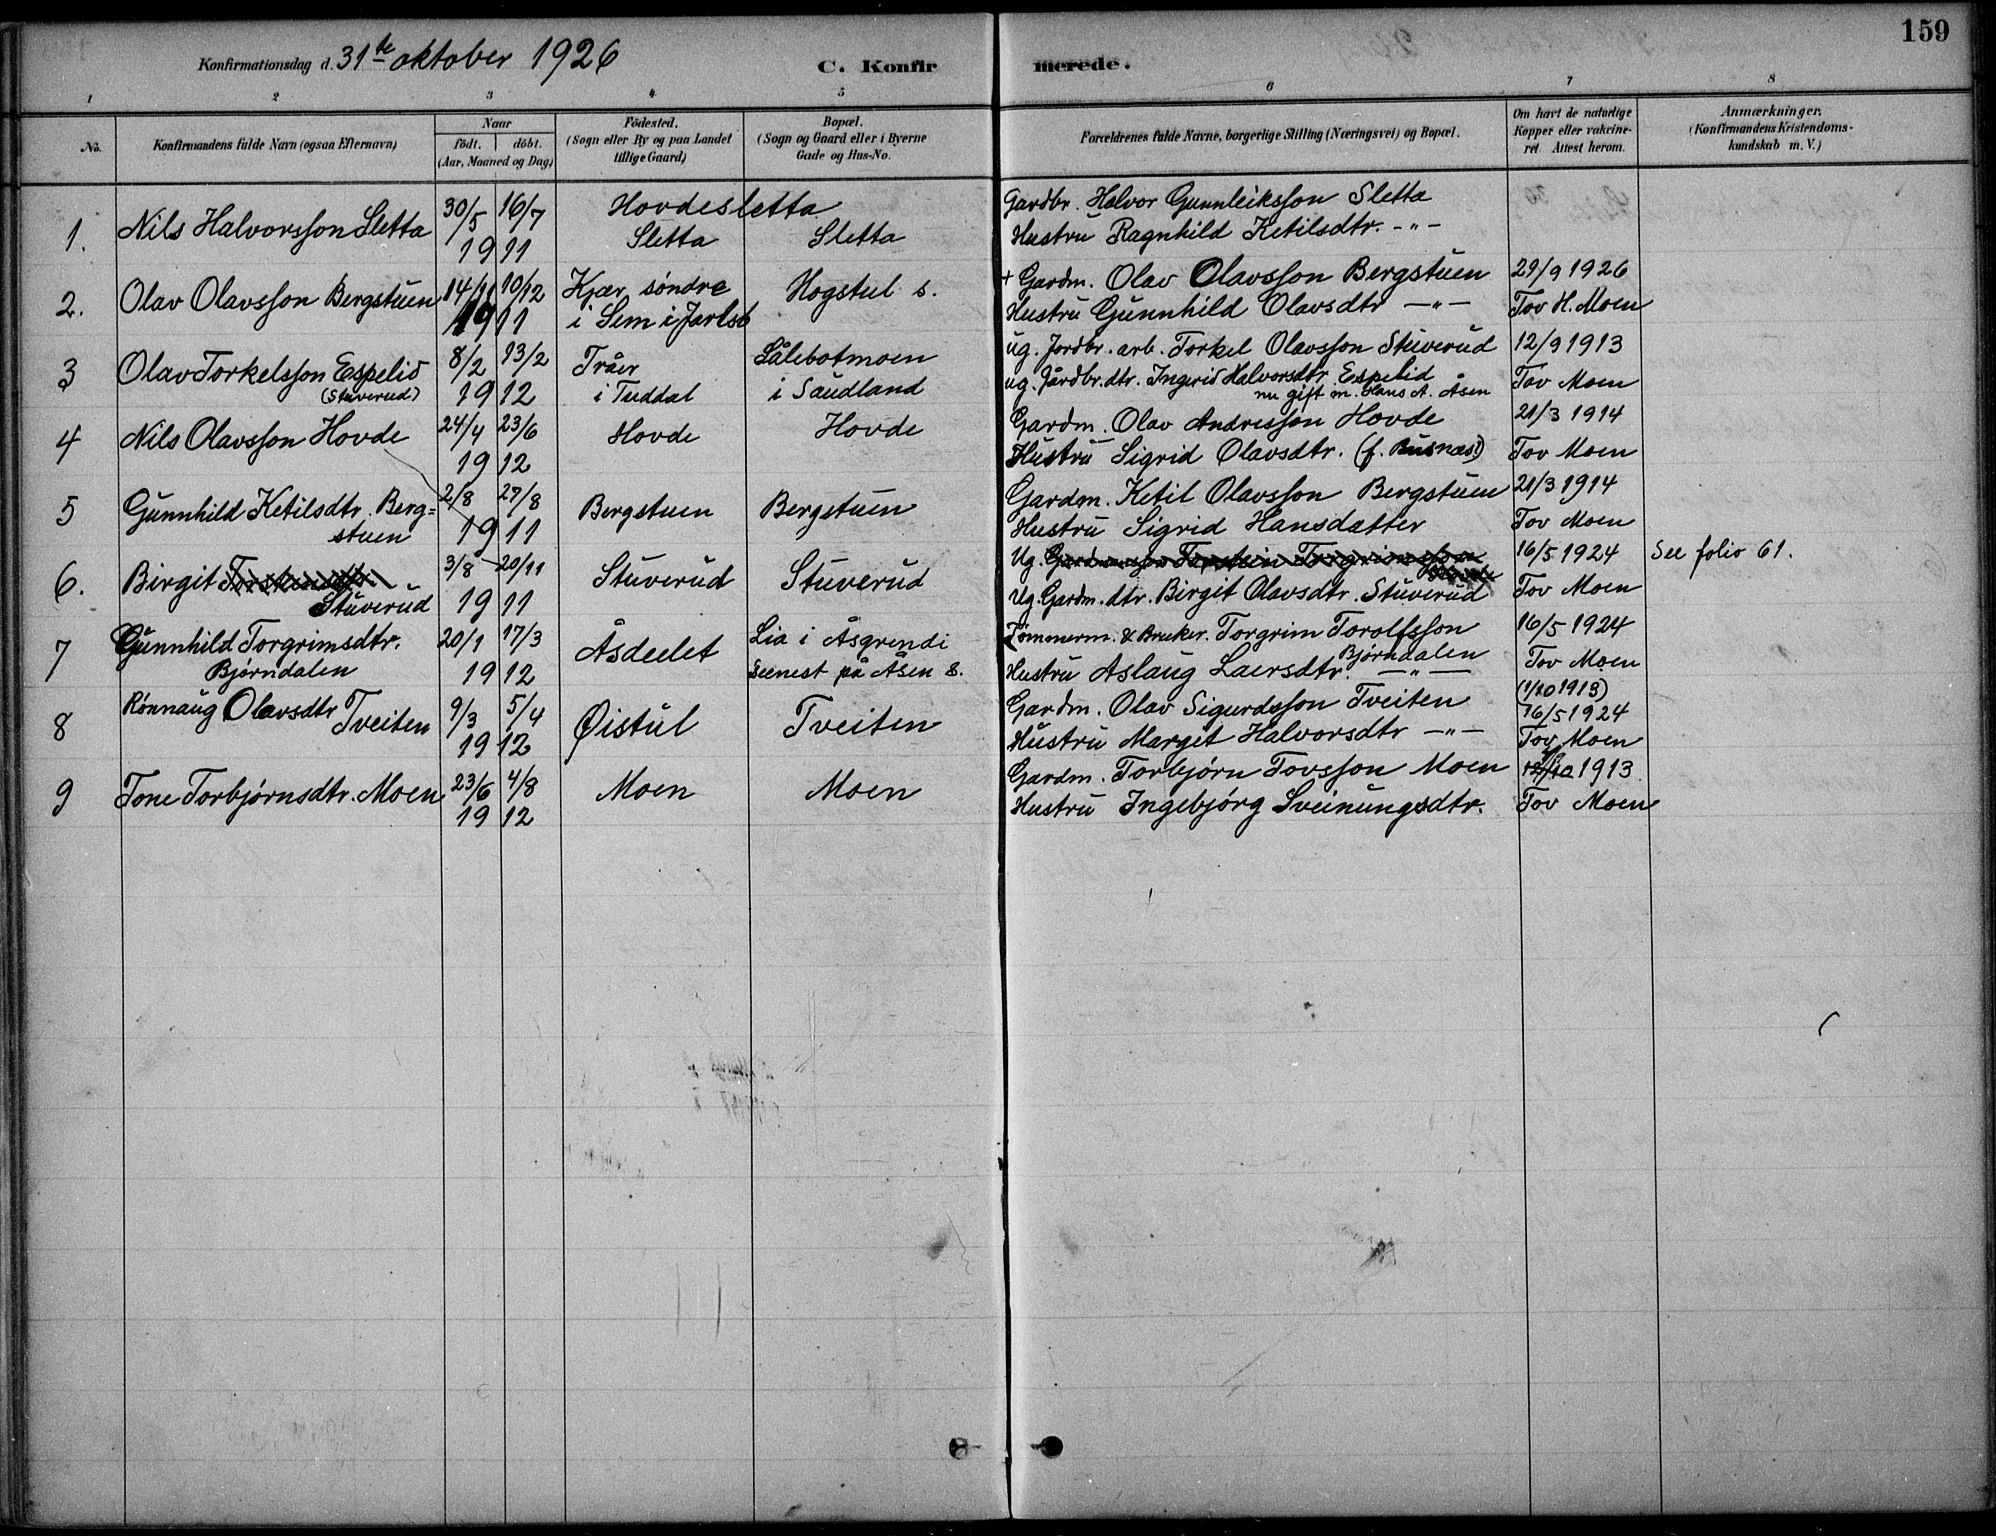 159
Konfirmationsdag d. 31te oktober 1926
C. Konfirmerede.
1 2 3 4 5 6 7 8
No.
Konfirmandens fulde Navn (ogsaa Efternavn)
Naar
født. døbt.
(Aar, Maaned og Dag)
Fødested.
(Sogn eller By og paa Landet
tillige Gaard)
Bopæl.
(Sogn og Gaard eller i Byerne
Gade og Hus-No.
Forældrenes fulde Navne, borgerlige Stilling (Næringsvei) og Bopæl.
Om havt de naturlige
Kopper eller vakcine-
ret Attest herom.
Anmærkninger.
(Konfirmandens Kristendoms-
kundskab m. V.)
1. Nils Halvorsson Sletta 30/5 16/7 1911 Hovdesletta
Sletta Sletta
Gardbr. Halvor Gunnleiksson Sletta
Hustru Ragnhild Ketilsdtr. -"-
2. Olav Olavsson Bergstuen 14/11 10/12 1911
Kjær søndre
i Sem i Jarlsb
Hogstul s.
+ Gardm. Olav Olavsson Bergstuen
Hustru Gunnhild Olavsdtr -"-
29/9 1926
Tov H. Moen
3 Olav Torkelsson Espelid
(Stuverud)
8/2 13/2 1912
Tråer
i Tuddal
Sålebotmoen
i Saudland
ug. Jordbr. arb. Torkel Olavsson Stuverud
ug. Jårdbr. dtr. Ingerid Halvorsdtr Espelid
nu gift m. Hans A. Åsen
12/9 1913
Tov Moen
4 Nils Olavsson Hovde 24/4 23/6 1912
Hovde
Hovde
Gardm. Olav Andresson Hovde
Hustru Sigrid Olavsdtr. (f. Busnæs)
21/3 1914
Tov Moen
5 Gunnhild Ketilsdtr. Berg=
stuen
2/8 27/8 1911
Bergstuen
Bergstuen
Gardm. Ketil Olavsson Bergstuen
Hustru Sigrid Hansdatter
21/3 1914
Tov Moen
6. Birgit Torsteinsdtr.
Stuverud
3/8 20/11 1911
Stuverud
Stuverud
Ug. Gardmannsson Torstein Torgrimsson
Ug. Gardm. dtr. Birgit Olavsdtr. Stuverud
16/5 1924
Tov Moen
See folio 61.
7 Gunnhild Torgrimsdtr.
Bjørndalen
20/1 17/3 1912
Åsdelet
Lia i Åsgrendi
seenest på Åsen s.
Tømmerm. & Bruker. Torgrim Torolfsson
Bjørndalen
Hustru Aslaug Laersdtr. -"-
16/5 1924
Tov Moen
8 Rønnaug Olavsdtr
Tveiten
9/3 5/4 1912
Øistul
Tveiten
Gardm. Olav Sigurdsson Tveiten
Hustru Margit Halvorsdtr -"-
(1/10 1913)
16/5 1924
Tov Moen
9 Tone Torbjørnsdtr. Moen 23/6 4/8 1912
Moen
Moen
Gardm. Torbjørn Tovsson Moen
Hustru Ingebjørg Sveinungsdtr.
1913
Tov Moen